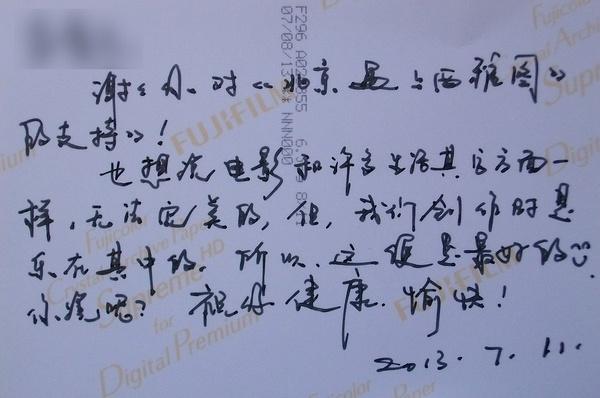 谢谢你对《北京遇上西雅图》
的支持!
也想说电影和许多生活其它方面一
样,无法完美的,但,我们创作时是
乐在其中的.所以,这便是最好的
你说呢?祝你健康.愉快!
2013.7.11.
07/08/13
NNN000
Fujicolor
Crystal Archive Paper
Supreme HD
for
Digital Premium
FUJIFILM
FUJIFILM
Fujicolor
Digital Premium
Fujicolor
Paper